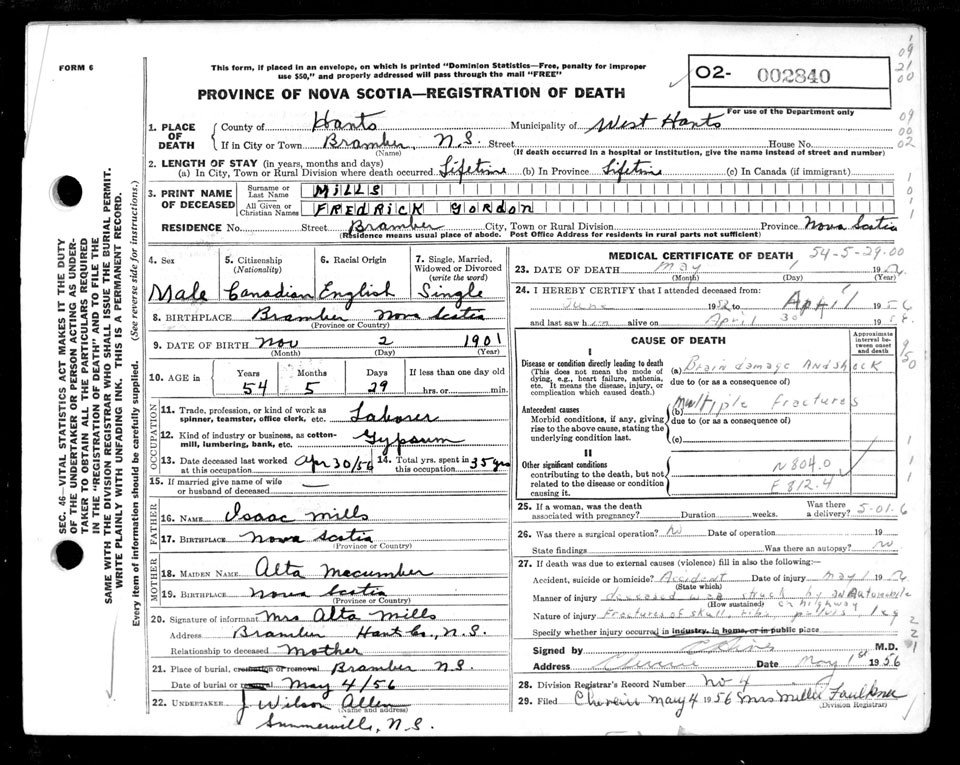 FORM 6
This form, if placed in an envelope, on which is printed "Dominion Statistics—Free, penalty for improper
use $50," and properly addressed will pass through the mail "FREE"
O2- 002840
PROVINCE OF NOVA SCOTIA—REGISTRATION OF DEATH
For use of the Department only
1. PLACE OF DEATH
County of Hants Municipality of West Hants
If in City or Town Bramber, N.S. Street House No.
(Name) (If death occurred in a hospital or institution, give the name instead of street and number)
2. LENGTH OF STAY (in years, months and days)
(a) In City, Town or Rural Division where death occurred Lifetime (b) In Province Lifetime (c) In Canada (if immigrant)
3. PRINT NAME OF DECEASED
Surname or Last Name MILLS
All Given or Christian Names FREDRICK GORDON
RESIDENCE No. Street Bramber City, Town or Rural Division Province Nova Scotia
(Residence means usual place of abode. Post Office Address for residents in rural parts not sufficient)
4. Sex 5. Citizenship (Nationality) 6. Racial Origin 7. Single, Married, Widowed or Divorced (write the word)
Male Canadian English Single
8. BIRTHPLACE Bramber Nova Scotia
(Province or Country)
9. DATE OF BIRTH Nov 2 1901
(Month) (Day) (Year)
10. AGE in Years Months Days If less than one day old
54 5 29 hrs. or min.
OCCUPATION
11. Trade, profession, or kind of work as spinner, teamster, office clerk, etc. Laborer
12. Kind of industry or business, as cotton-mill, lumbering, bank, etc. Gypsum
13. Date deceased last worked at this occupation Apr 30/56 14. Total yrs. spent in this occupation 35 yrs
15. If married give name of wife or husband of deceased —
FATHER
16. NAME Isaac Mills
17. BIRTHPLACE Nova Scotia
(Province or Country)
MOTHER
18. MAIDEN NAME Alta Macumber
19. BIRTHPLACE Nova Scotia
(Province or Country)
20. Signature of informant Mrs Alta Mills
Address Bramber Hants Co., N.S.
Relationship to deceased Mother
21. Place of burial, cremation or removal Bramber N.S.
Date of burial or removal May 4/56
22. UNDERTAKER J Wilson Allen
(Name and address)
Summerville, N.S.
MEDICAL CERTIFICATE OF DEATH 54-5-29.00
23. DATE OF DEATH May 1 19
(Month) (Day) (Year)
24. I HEREBY CERTIFY that I attended deceased from
June 19 to April 1956
and last saw him alive on April 30 19
CAUSE OF DEATH
Approximate interval between onset and death
I
Disease or condition directly leading to death
(This does not mean the mode of dying, e.g., heart failure, asthenia, etc. It means the disease, injury, or complication which caused death.)
(a) Brain damage and shock
due to (or as a consequence of)
Antecedent causes
Morbid conditions, if any, giving rise to the above cause, stating the underlying condition last.
(b) Multiple fractures
due to (or as a consequence of)
(c)
II
Other significant conditions
contributing to the death, but not related to the disease or condition causing it.
N804.0
E812.4
25. If a woman, was the death associated with pregnancy? Duration weeks. Was there a delivery? 5-01-6
26. Was there a surgical operation? No Date of operation 19
State findings Was there an autopsy? No
27. If death was due to external causes (violence) fill in also the following:—
Accident, suicide or homicide? Accident Date of injury May 1 19
(State which)
Manner of injury deceased was struck by an automobile
(How sustained) on highway
Nature of injury Fractures of skull, ribs, pelvis, leg
Specify whether injury occurred in industry, in home, or in public place
Signed by M.D.
Address Date May 1st 1956
28. Division Registrar's Record Number No 4
29. Filed Cheverie May 4 1956 Mrs Faulkner
(Division Registrar)
SEC. 46—VITAL STATISTICS ACT MAKES IT THE DUTY
OF THE UNDERTAKER OR PERSON ACTING AS UNDER-
TAKER TO OBTAIN ALL THE PARTICULARS REQUIRED
IN THE "REGISTRATION OF DEATH" AND TO FILE THE
SAME WITH THE DIVISION REGISTRAR WHO SHALL ISSUE THE BURIAL PERMIT.
WRITE PLAINLY WITH UNFADING INK. THIS IS A PERMANENT RECORD.
Every item of information should be carefully supplied. (See reverse side for instructions.)